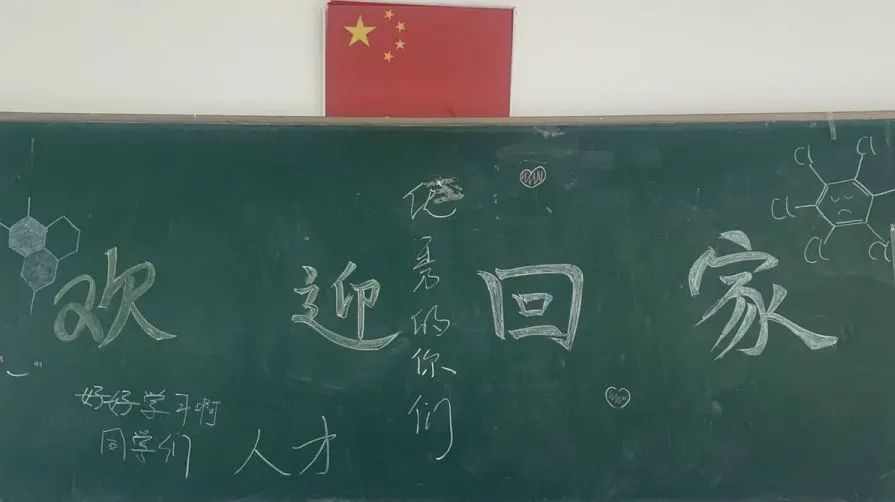 优秀的你们
欢迎回家
好好学习啊
同学们
人才
Cl
Cl
Cl
Cl
Cl